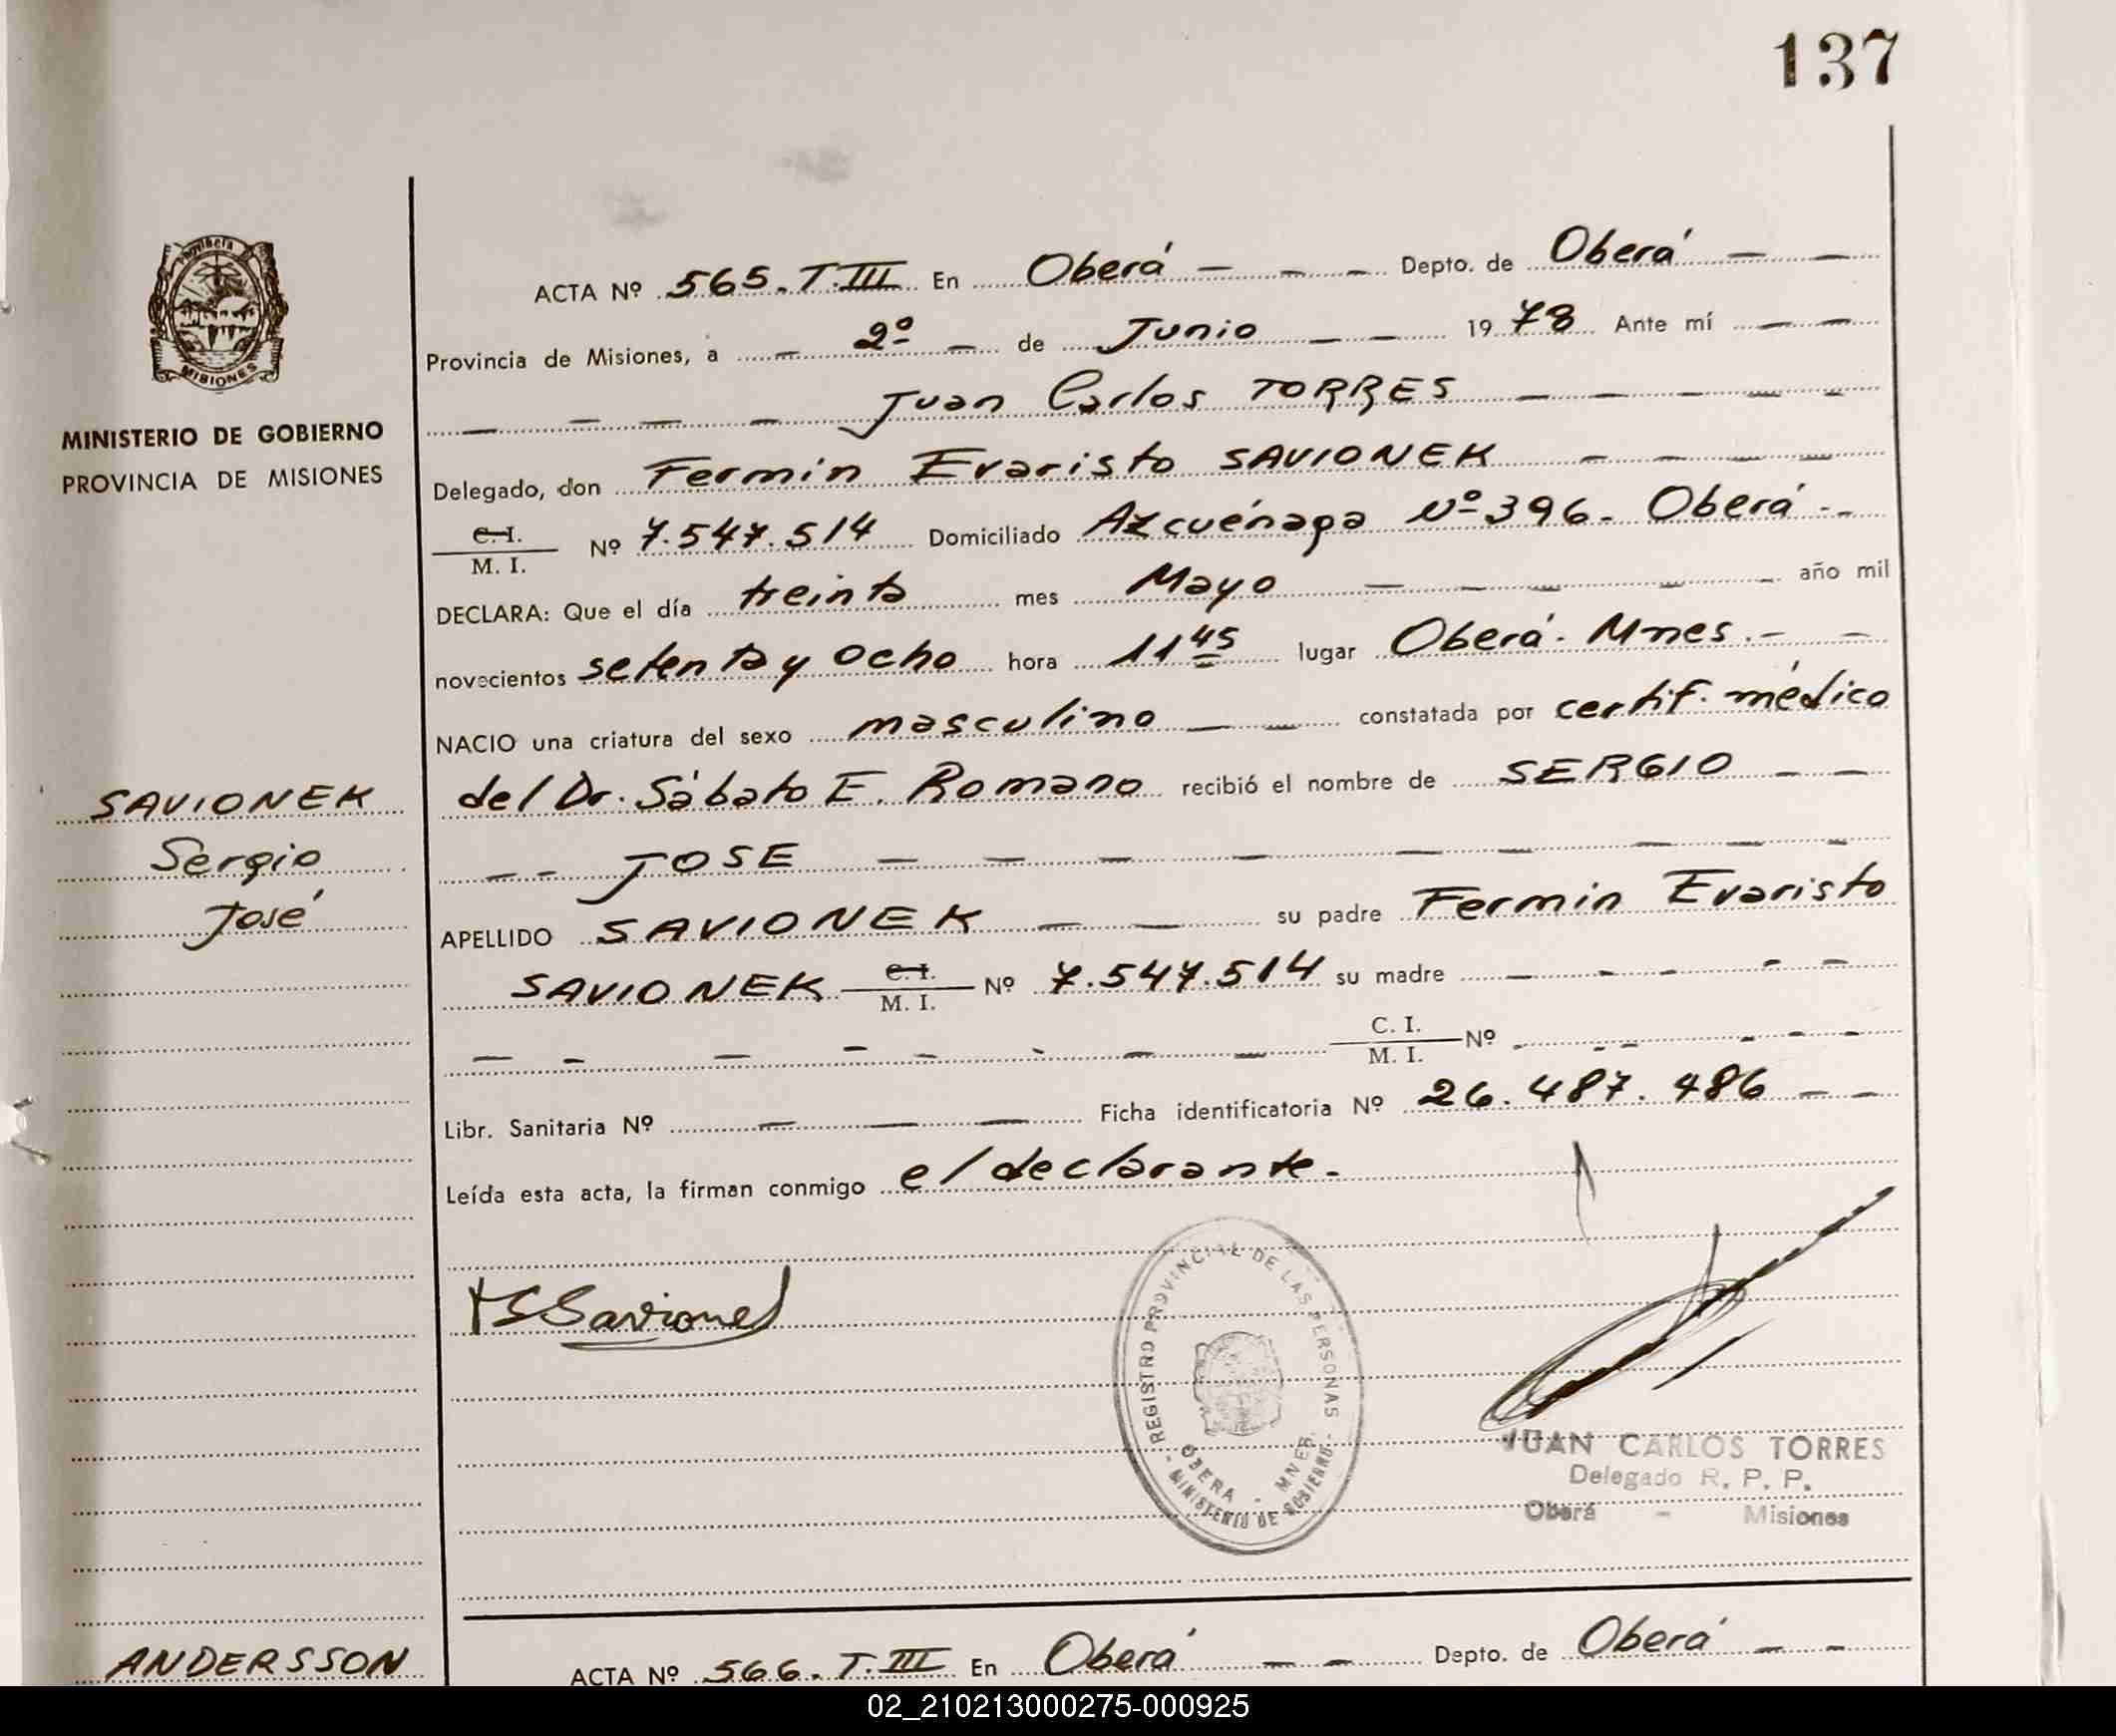 137
Provincia
MISIONES
MINISTERIO DE GOBIERNO
PROVINCIA DE MISIONES
SAVIONEK
Sergio
José
ACTA Nº 565. T. III En Oberá - - - Depto. de Oberá - -
Provincia de Misiones, a - 2º - de Junio - - 1978 Ante mí - -
- - - - Juan Carlos TORRES - - - - -
Delegado, don Fermin Evaristo SAVIONEK - - - -
C.I.
M. I. Nº 7.547.514 Domiciliado Azcuénaga Nº 396. Oberá - -
DECLARA: Que el día treinta mes Mayo - - - - - año mil
novecientos setenta y ocho hora 11 45 lugar Oberá. Mnes. - -
NACIO una criatura del sexo masculino - - constatada por certif. médico
del Dr. Sábato E. Romano recibió el nombre de SERGIO - -
- - JOSE - - - - - - - - -
APELLIDO SAVIONEK - - su padre Fermin Evaristo
SAVIONEK C.I.
M. I. Nº 7.547.514 su madre - - - - -
- - - - - - - - C. I.
M. I. Nº - - - - -
Libr. Sanitaria Nº - - - Ficha identificatoria Nº 26.487.486 - -
Leída esta acta, la firman conmigo el declarante.-
REGISTRO PROVINCIAL DE LAS PERSONAS
OBERA - MNES.
- MINISTERIO DE GOBIERNO -
JUAN CARLOS TORRES
Delegado R. P. P.
Oberá - Misiones
ANDERSSON
ACTA Nº 566. T. III En Oberá - - Depto. de Oberá - -
02_210213000275-000925